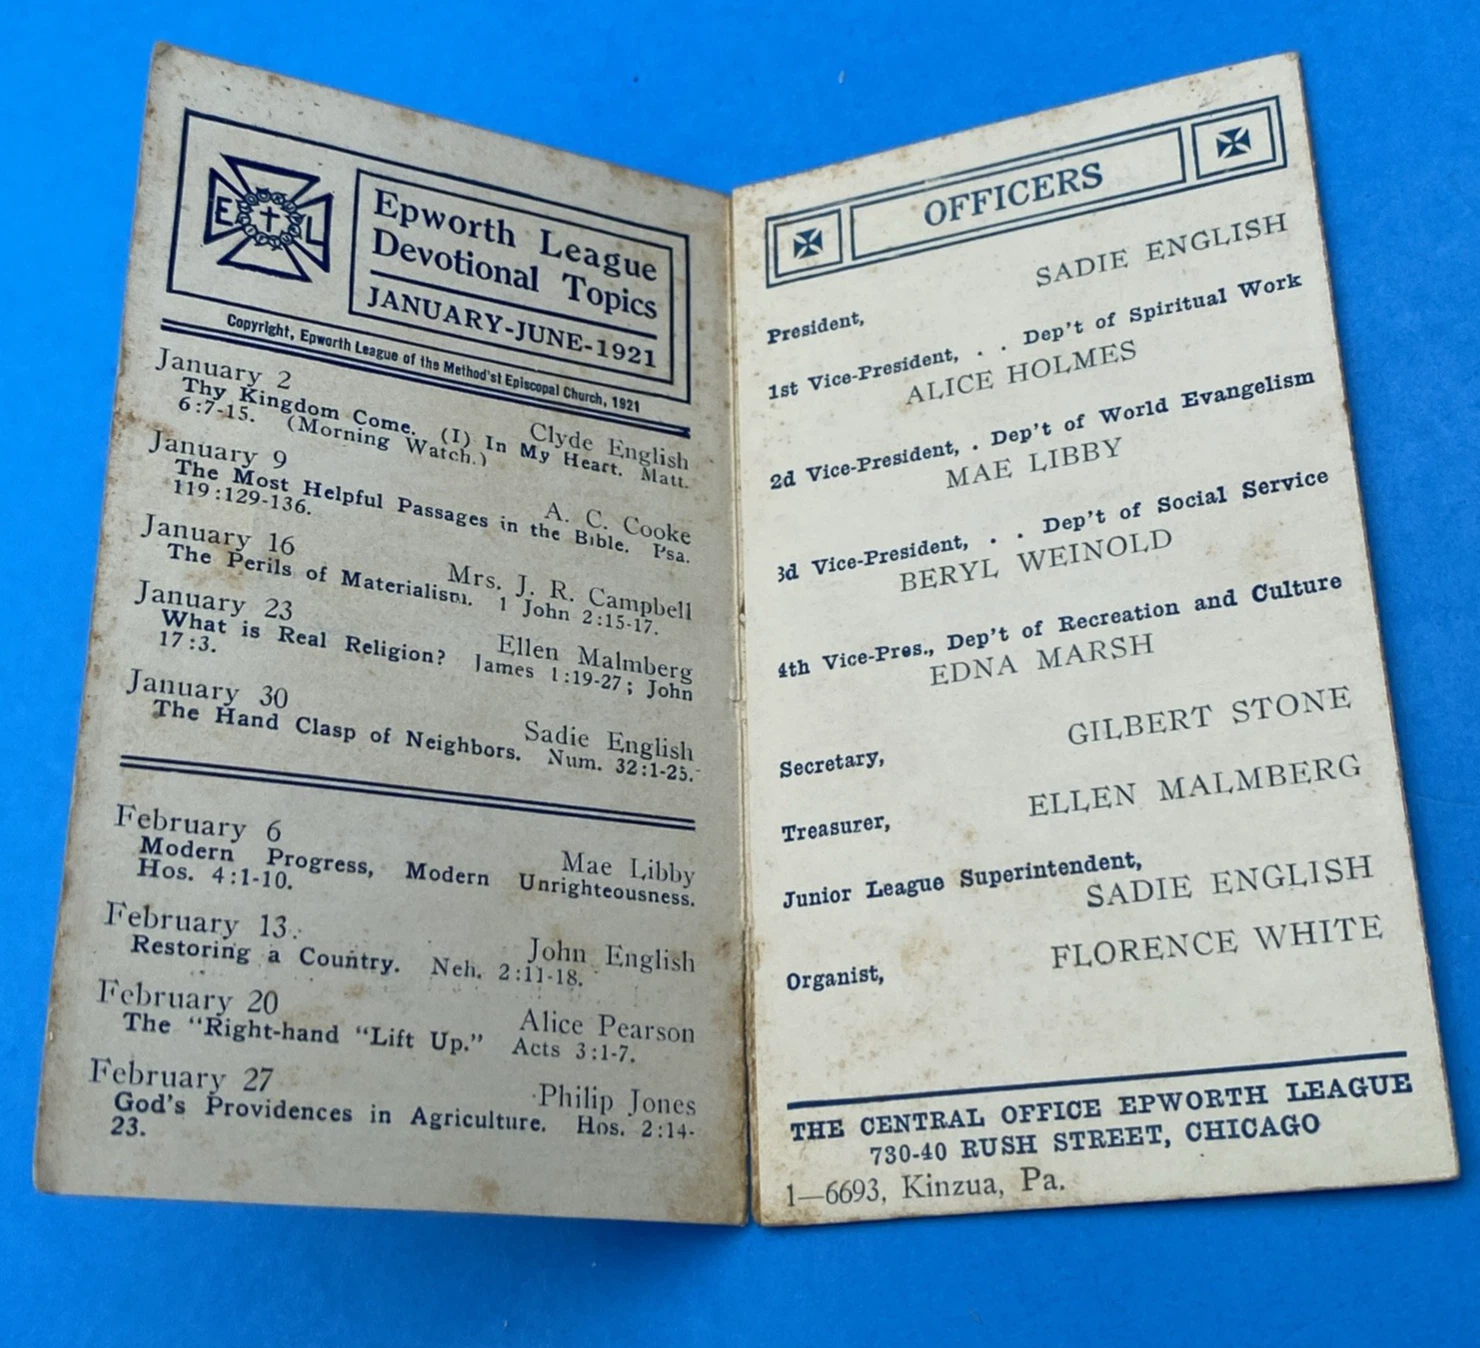 E L
Epworth League
Devotional Topics
JANUARY-JUNE-1921
Copyright, Epworth League of the Method'st Episcopal Church, 1921
January 2 Clyde English
Thy Kingdom Come. (I) In My Heart. Matt.
6:7-15. (Morning Watch.)
January 9 A. C. Cooke
The Most Helpful Passages in the Bible. Psa.
119:129-136.
January 16 Mrs. J. R. Campbell
The Perils of Materialism. 1 John 2:15-17.
January 23 Ellen Malmberg
What is Real Religion? James 1:19-27; John
17:3.
January 30 Sadie English
The Hand Clasp of Neighbors. Num. 32:1-25.
February 6 Mae Libby
Modern Progress, Modern Unrighteousness.
Hos. 4:1-10.
February 13 John English
Restoring a Country. Neh. 2:11-18.
February 20 Alice Pearson
The "Right-hand "Lift Up." Acts 3:1-7.
February 27 Philip Jones
God's Providences in Agriculture. Hos. 2:14-
23.
OFFICERS
SADIE ENGLISH
President,
1st Vice-President, . . Dep't of Spiritual Work
ALICE HOLMES
2d Vice-President, . Dep't of World Evangelism
MAE LIBBY
3d Vice-President, . . Dep't of Social Service
BERYL WEINOLD
4th Vice-Pres., Dep't of Recreation and Culture
EDNA MARSH
GILBERT STONE
Secretary,
ELLEN MALMBERG
Treasurer,
Junior League Superintendent,
SADIE ENGLISH
FLORENCE WHITE
Organist,
THE CENTRAL OFFICE EPWORTH LEAGUE
730-40 RUSH STREET, CHICAGO
1—6693, Kinzua, Pa.